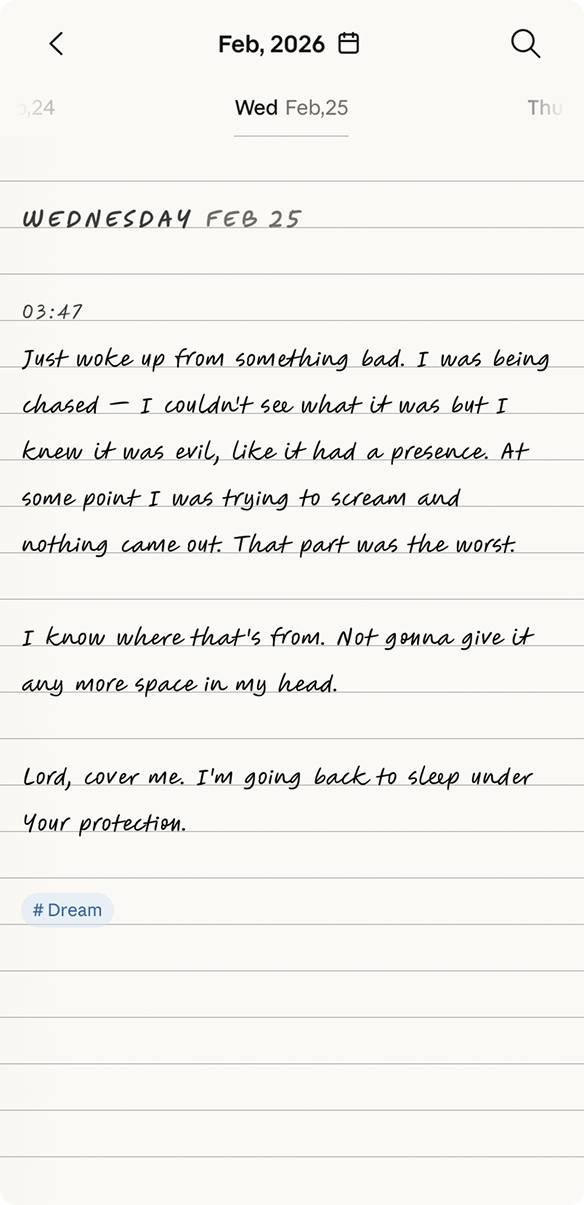 Feb, 2026
,24
Wed Feb,25
Thu
WEDNESDAY FEB 25
03:47
Just woke up from something bad. I was being
chased — I couldn't see what it was but I
knew it was evil, like it had a presence. At
some point I was trying to scream and
nothing came out. That part was the worst.
I know where that's from. Not gonna give it
any more space in my head.
Lord, cover me. I'm going back to sleep under
Your protection.
# Dream